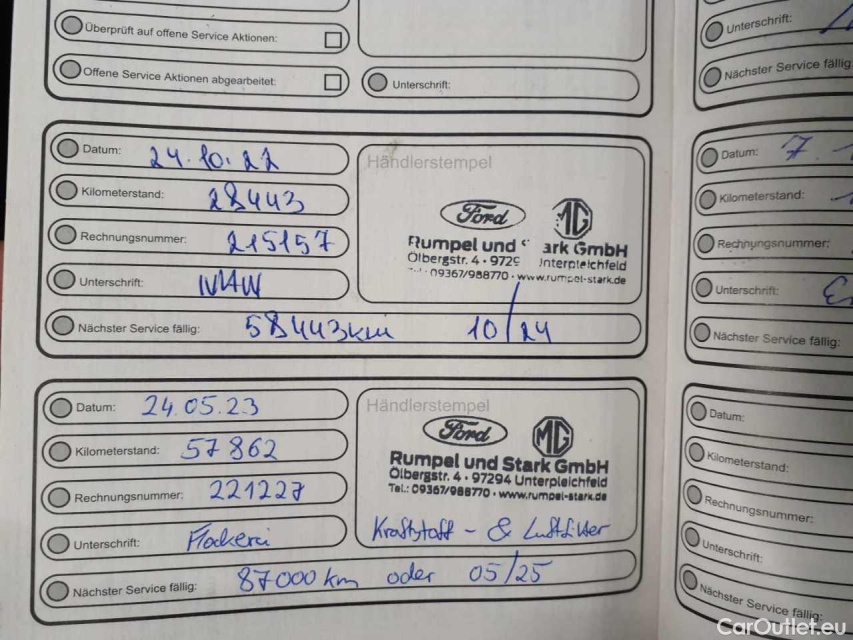 Überprüft auf offene Service Aktionen:
Offene Service Aktionen abgearbeitet:
Unterschrift:
Datum: 24.10.22
Kilometerstand: 28443
Rechnungsnummer: 215157
Unterschrift:
Nächster Service fällig: 58443km 10/24
Händlerstempel
Ford MG
Rumpel und ark GmbH
Ölbergstr. 4 · 9729 Unterpleichfeld
09367/988770 · www.rumpel-stark.de
Datum: 24.05.23
Kilometerstand: 57862
Rechnungsnummer: 221227
Unterschrift:
Nächster Service fällig: 87000km oder 05/25
Händlerstempel
Ford MG
Rumpel und Stark GmbH
Ölbergstr. 4 · 97294 Unterpleichfeld
Tel.: 09367/988770 · www.rumpel-stark.de
Kraftstoff - & Luftfilter
Unterschrift:
Nächster Service fällig
Datum: 7.
Kilometerstand:
Rechnungsnummer:
Unterschrift:
Nächster Service fällig:
Datum:
Kilometerstand:
Rechnungsnummer:
Unterschrift:
Nächster Service fällig:
CarOutlet.eu